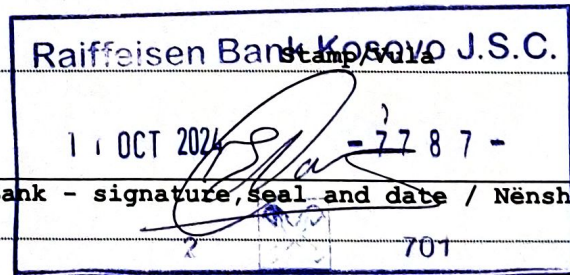 Raiffeisen Bank Kosovo J.S.C.
Stamp/Vula
11 OCT 2024 - 7 7 8 7 -
ank - signature,seal and date / Nënsh
2 701